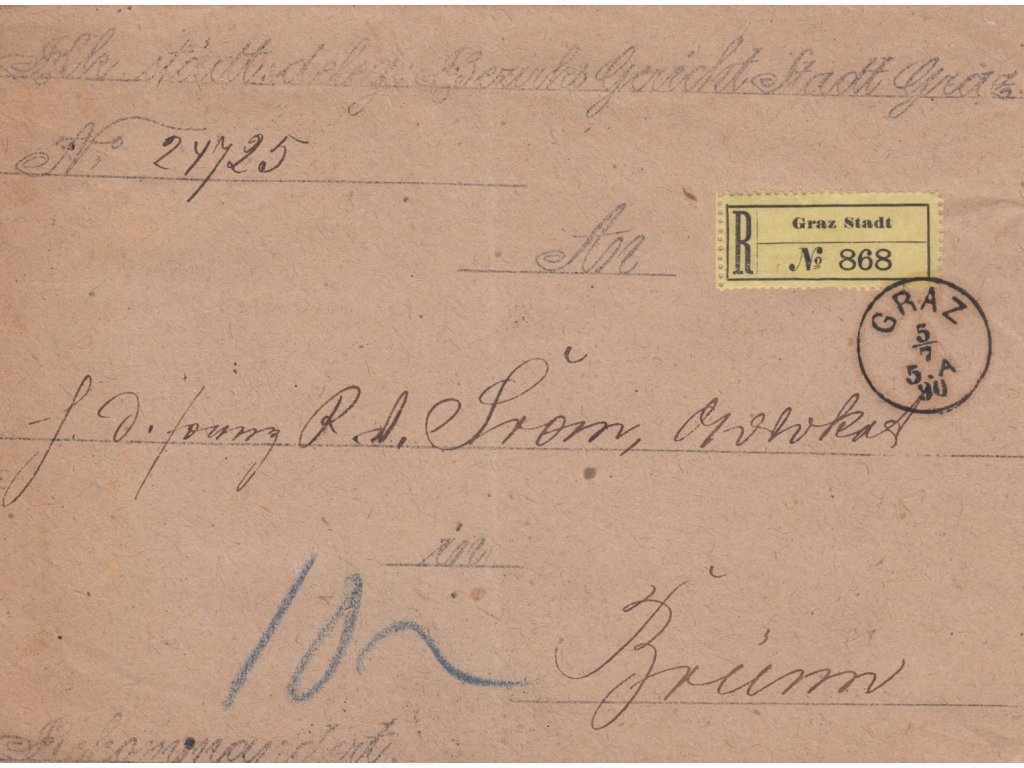 K.k. städt. deleg. Bezirks Gericht Stadt Graz
No 24725
R Graz Stadt
No 868
An
GRAZ
5/7
5.A
90
H. D. Franz R. v. Šrom, Advokat
in
10
Brünn
Rekommandert.